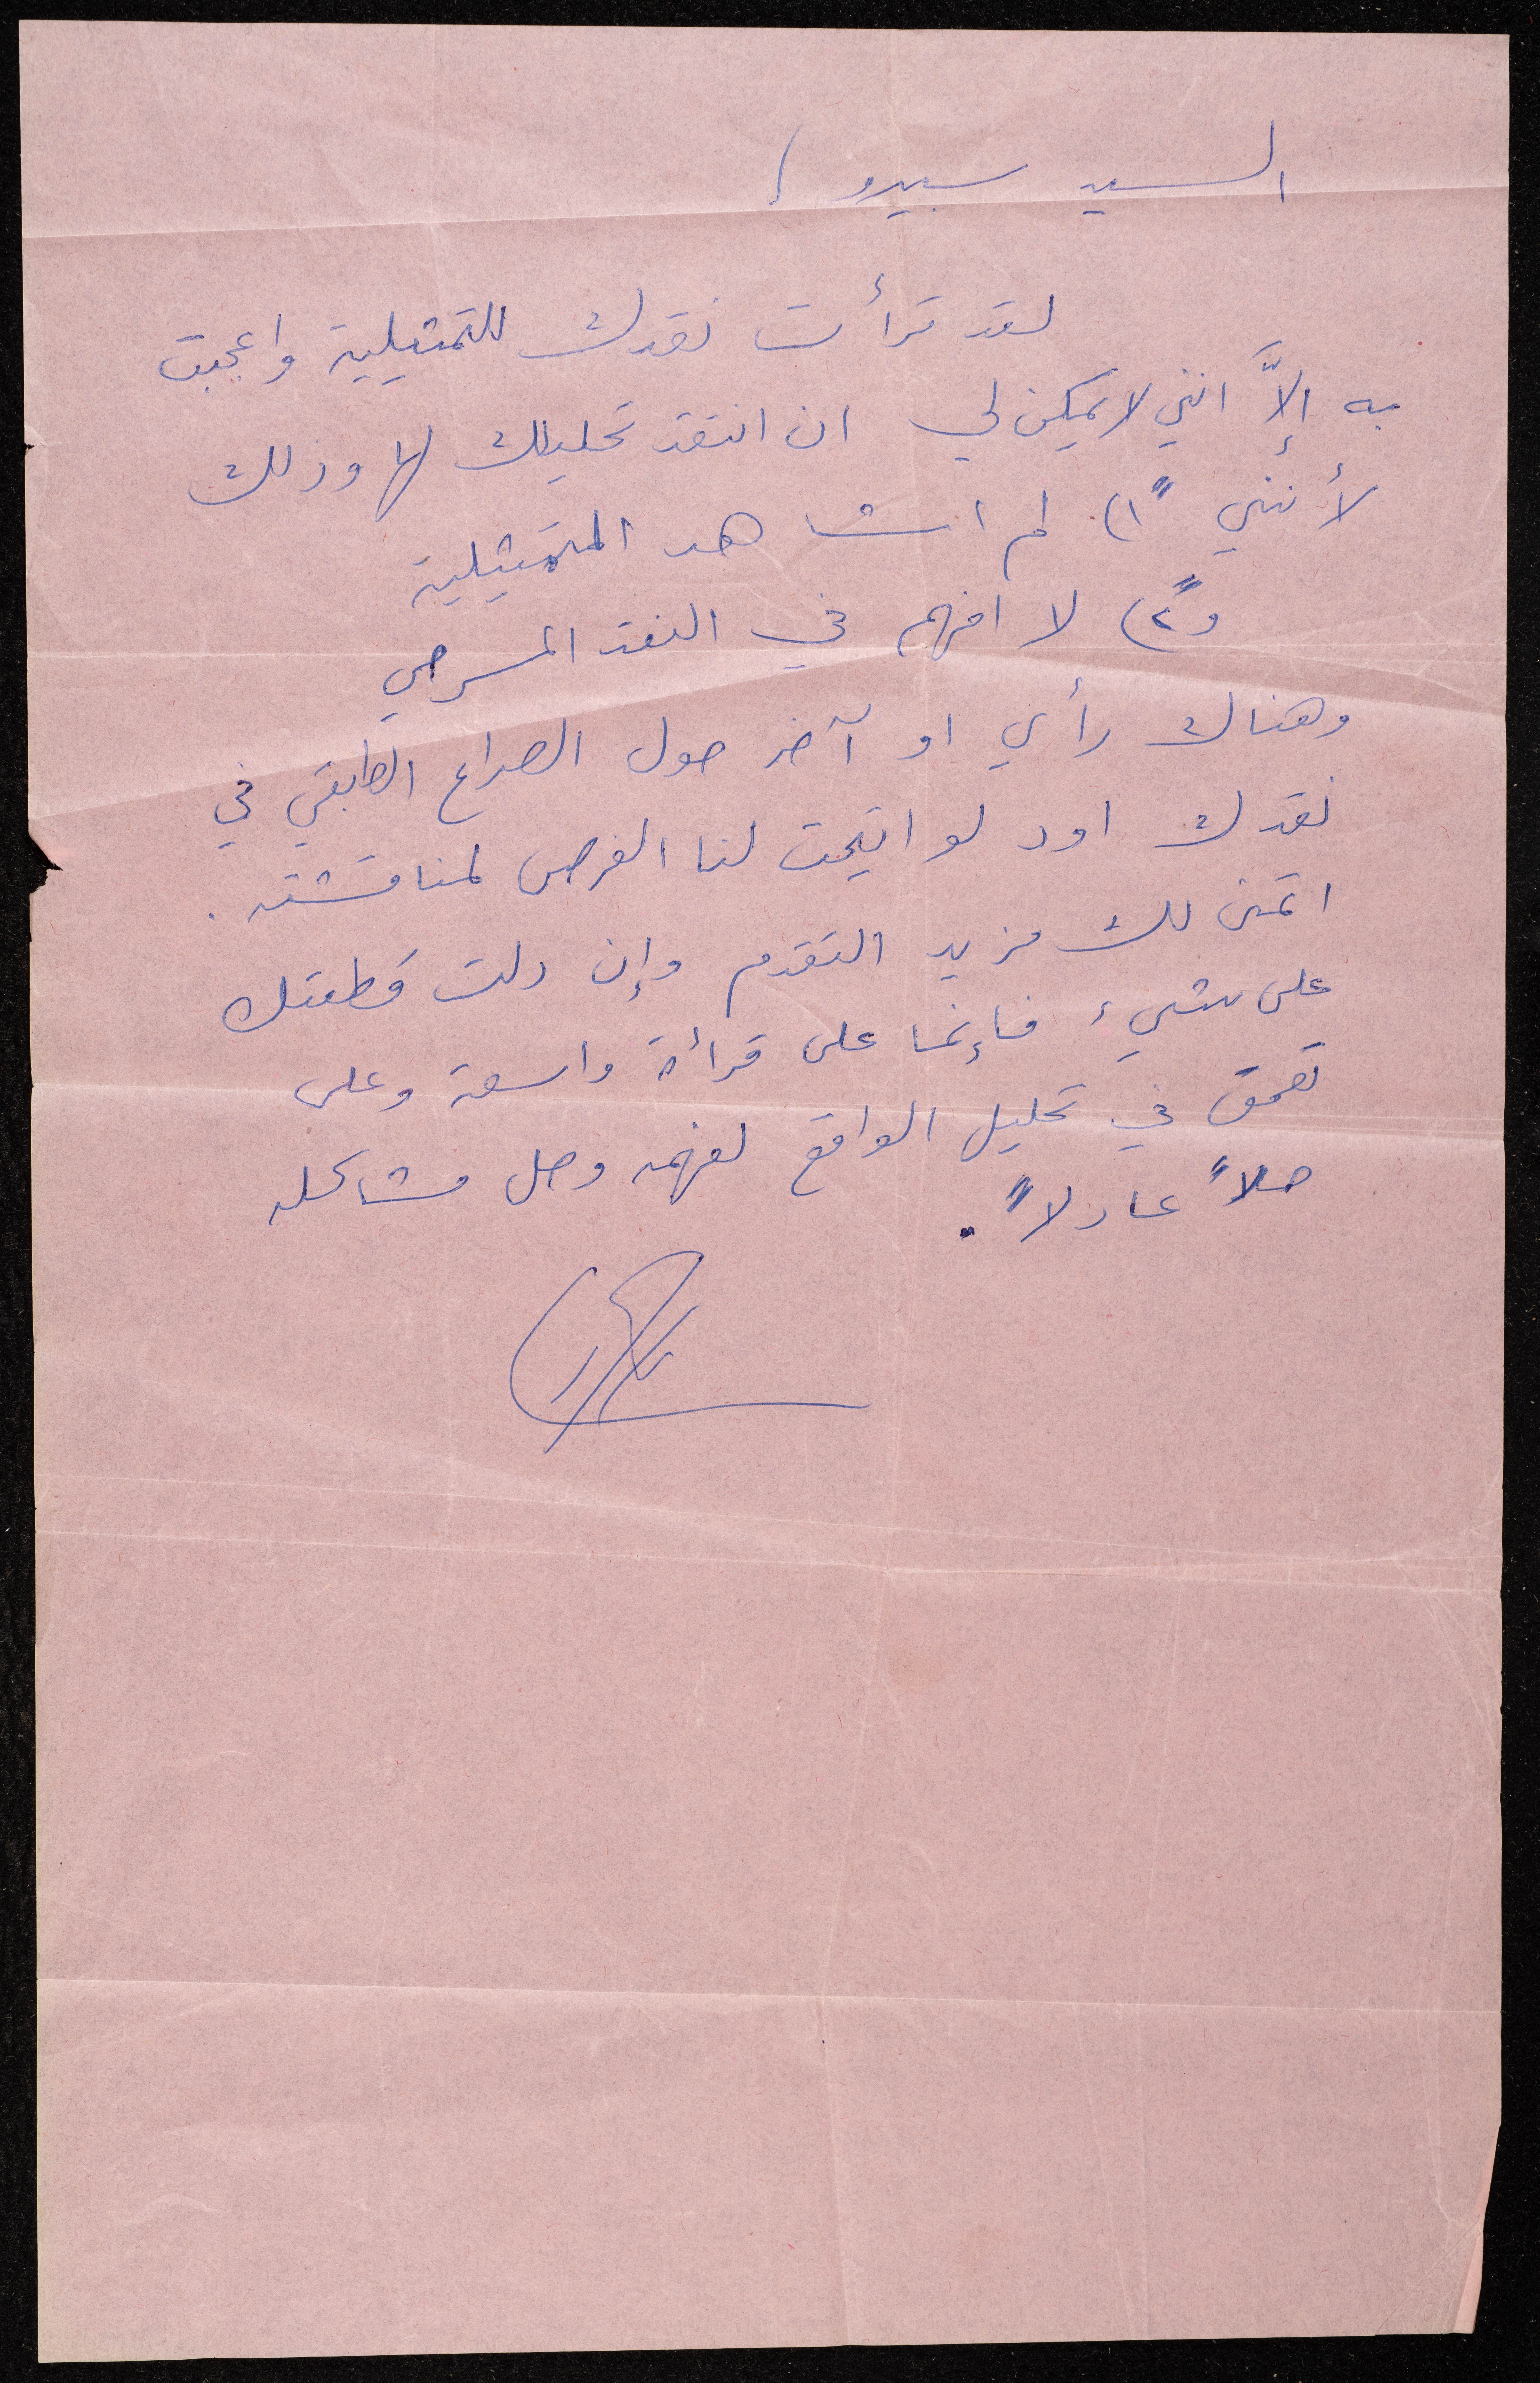 السيد سبيرو /
لقد قرأت نقدك للتمثيلية واعجبت
به إلاَّ انني لا يمكن لي ان انتقد تحليلك لها وذلك
لأنني ١ً) لم اشاهد التمثيلية
و٢ً) لا افهم في النقد المسرحي
وهناك رأي او آخر حول الصراع الطبقي في
نقدك اود لو اتيحت لنا الفرص لمناقشته.
اتمنى لك مزيد التقدم وإن دلت قطعتك
على شيء فإنما على قرأة واسعة وعلى
تعمق في تحليل الواقع لفهمه وحل مشاكله
حلاً عادلاً.